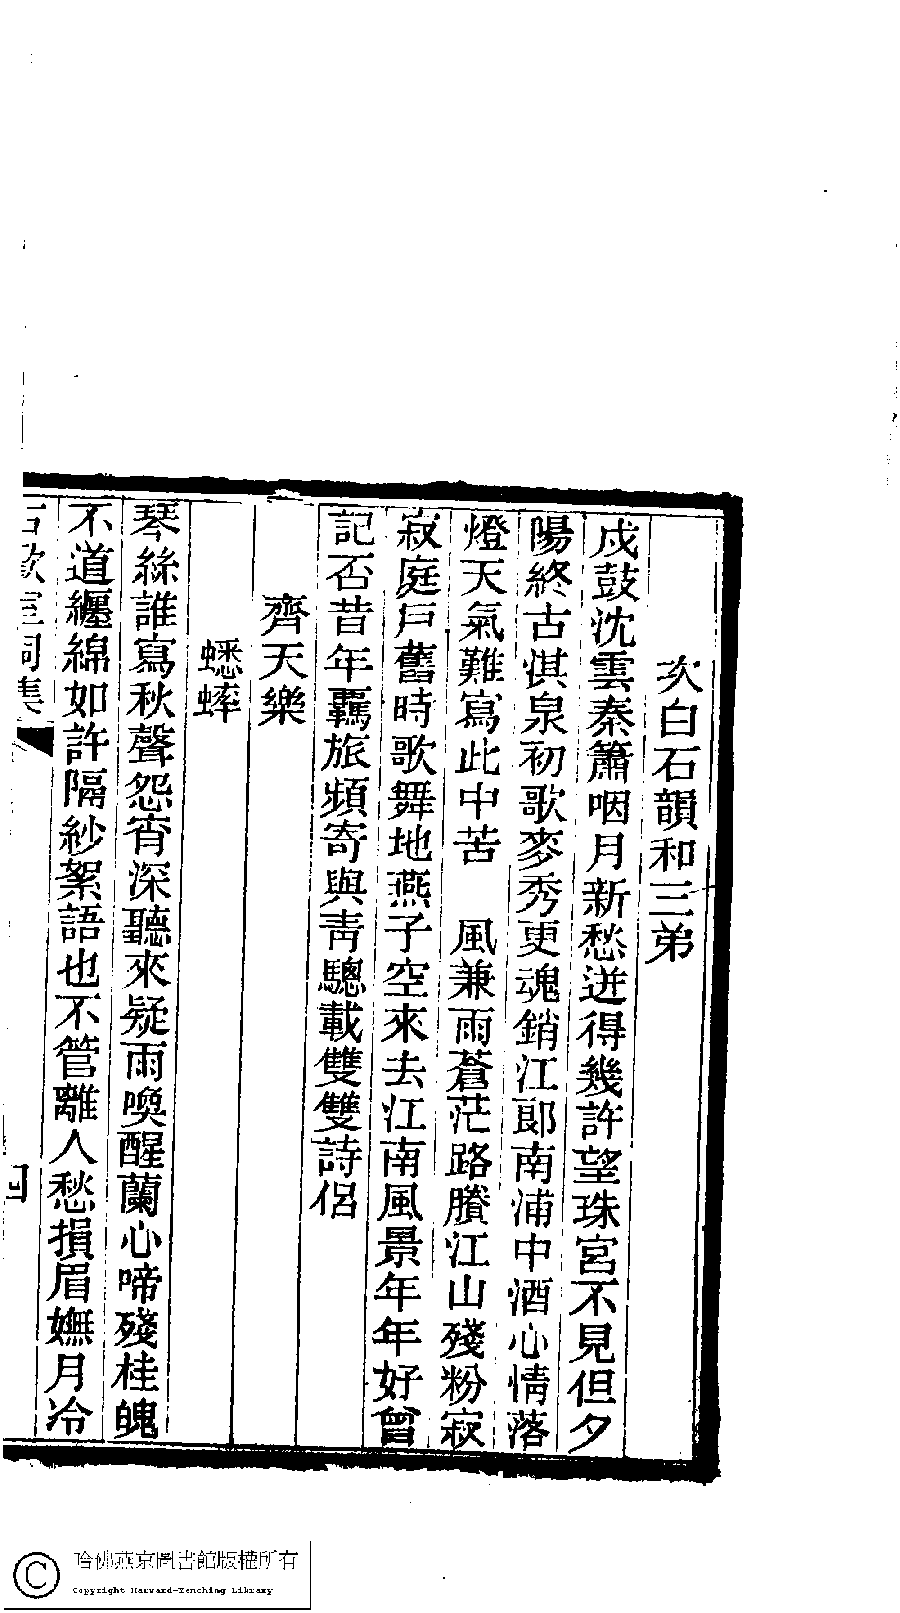 次白石韻和三弟
戍鼓沈雲秦簫咽月新愁迸得幾許望珠宮不見但夕
陽終古淇泉初歌麥秀更魂銷江郎南浦中酒心情落
燈天氣難寫此中苦　風兼雨蒼茫路賸江山殘粉寂
寂庭戶舊時歌舞地燕子空來去江南風景年年好曾
記否昔年羈旅頻寄與靑驄載雙雙詩侶
齊天樂
蟋蟀
琴絲誰寫秋聲怨宵深聽來疑雨喚醒蘭心啼殘桂魄
不道纏綿如許隔紗絮語也不管離人愁損眉嫵月冷
室詞集
四
哈佛燕京圖書館版權所有
Copyright Harvard-Yenching Library